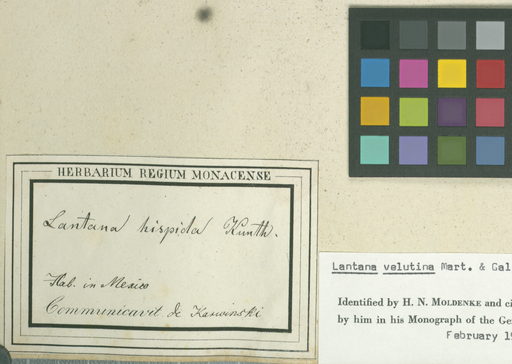 HERBARIUM REGIUM MONACENSE
Lantana hispida Kunth.
Hab. in Mexico
Communicavit de Karwinski
Lantana velutina Mart. & Gal
Identified by H. N. MOLDENKE and ci
by him in his Monograph of the Ge
February 19